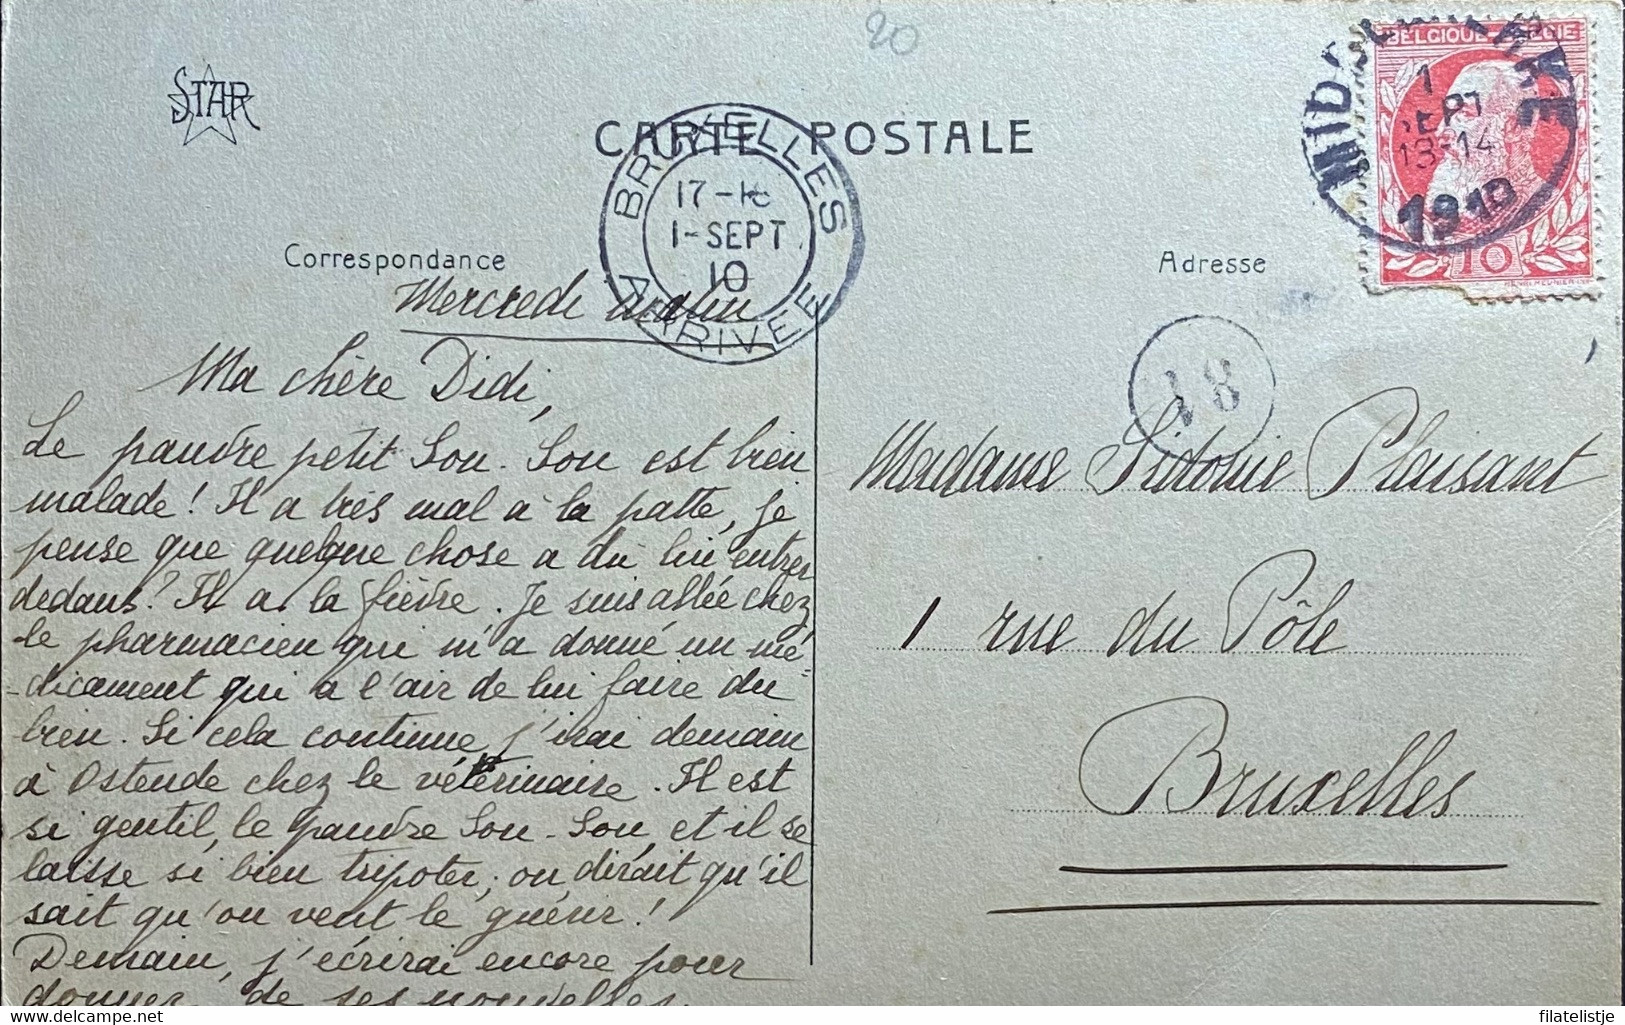 20
STAR
CARTE POSTALE
BRUXELLES
17-18
1-SEPT
10
ARRIVEE
BELGIQUE
MIDDELKERKE
1
SEPT
13-14
1910
10
Correspondance
Adresse
18
Mercredi matin
Ma chère Didi,
Le pauvre petit Sou-Sou est bien
malade! Il a très mal à la patte, je
pense que quelque chose a dû lui entrer
dedans? Il a la fièvre. Je suis allée chez
le pharmacien qui m'a donné un mé-
-dicament qui a l'air de lui faire du
bien. Si cela continue, j'irai demain
à Ostende chez le vétérinaire. Il est
si gentil, le pauvre Sou-Sou, et il se
laisse si bien tripoter; on dirait qu'il
sait qu'on veut le guérir!
Demain, j'écrirai encore pour
donner de ses nouvelles.
Madame Sidonie Plaisant
1 rue du Pôle
Bruxelles
www.delcampe.net
filatelistje